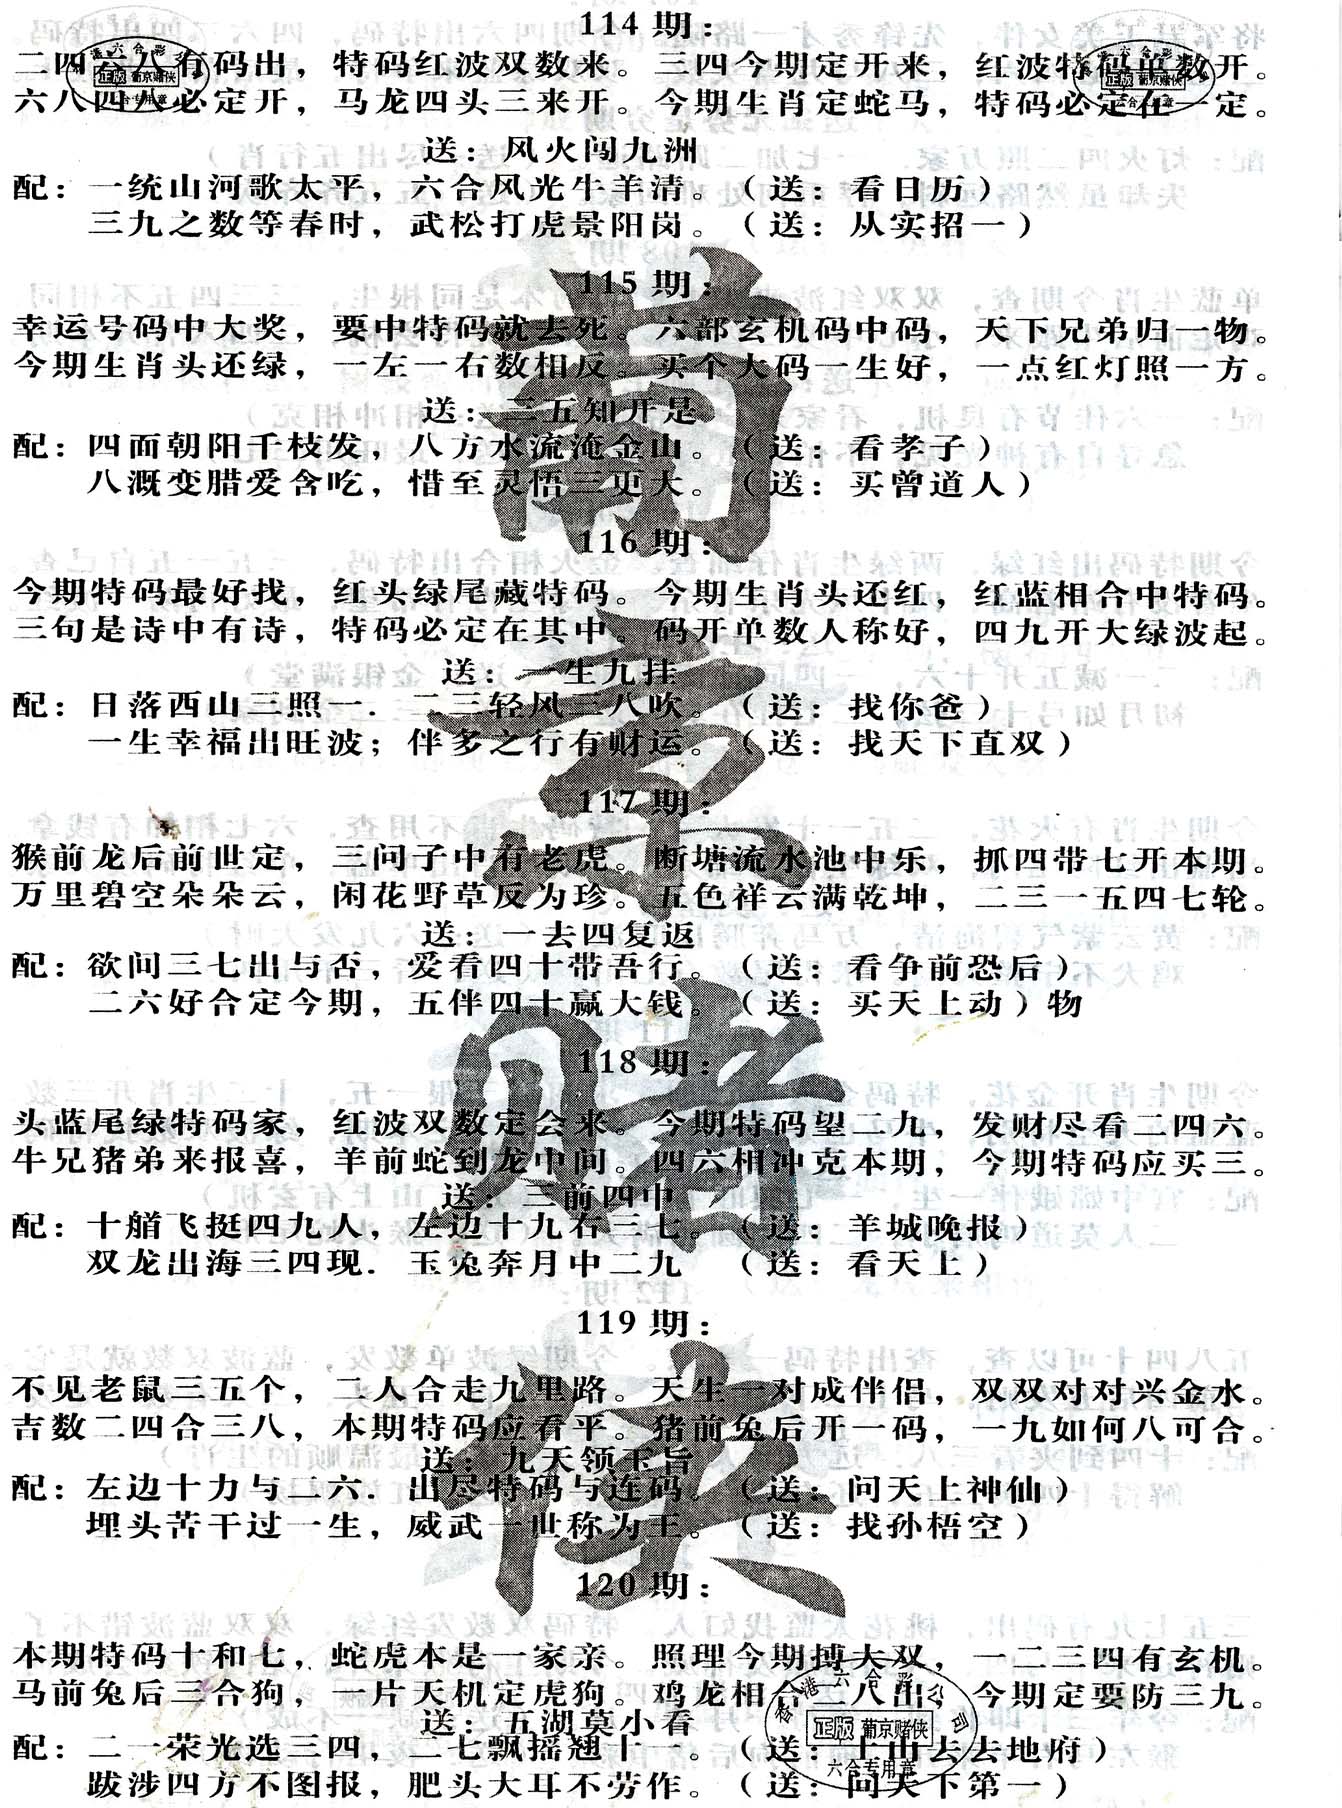 114期：
二四六八有码出，特码红波双数来。三四今期定开来，红波特码单数开。
六八四八必定开，马龙四头三来开。今期生肖定蛇马，特码必定在一定。
送：风火闯九洲
配：一统山河歌太平，六合风光牛羊清。（送：看日历）
三九之数等春时，武松打虎景阳岗。（送：从实招一）
115期：
幸运号码中大奖，要中特码就去死。六部玄机码中码，天下兄弟归一物。
今期生肖头还绿，一左一右数相反。买个大码一生好，一点红灯照一方。
送：三五知开是
配：四面朝阳千枝发，八方水流淹金山。（送：看孝子）
八溉变腊爱含吃，惜至灵悟三更大。（送：买曾道人）
116期：
今期特码最好找，红头绿尾藏特码。今期生肖头还红，红蓝相合中特码。
三句是诗中有诗，特码必定在其中。码开单数人称好，四九开大绿波起。
送：一生九挂
配：日落西山三照一．二三轻风三八吹。（送：找你爸）
一生幸福出旺波；伴多之行有财运。（送：找天下直双）
117期：
猴前龙后前世定，三问子中有老虎。断塘流水池中乐，抓四带七开本期。
万里碧空朵朵云，闲花野草反为珍。五色祥云满乾坤，二三一五四七轮。
送：一去四复返
配：欲问三七出与否，爱看四十带吾行。（送：看争前恐后）
二六好合定今期，五伴四十赢大钱。（送：买天上动）物
118期：
头蓝尾绿特码家，红波双数定会来。今期特码望二九，发财尽看二四六。
牛兄猪弟来报喜，羊前蛇到龙中间。四六相冲克本期，今期特码应买三。
送：三前四中
配：十艏飞挺四九人，左边十九右三七。（送：羊城晚报）
双龙出海三四现．玉兔奔月中二九 （送：看天上）
119期：
不见老鼠三五个，二人合走九里路。天生一对成伴侣，双双对对兴金水。
吉数二四合三八，本期特码应看平。猪前兔后开一码，一九如何八可合。
送：九天领玉旨
配：左边十力与二六．出尽特码与连码。（送：问天上神仙）
埋头苦干过一生，威武一世称为王。（送：找孙悟空）
120期：
本期特码十和七，蛇虎本是一家亲。照理今期搏大双，一二三四有玄机。
马前兔后三合狗，一片天机定虎狗。鸡龙相合二八出，今期定要防三九。
送：五湖莫小看
配：二一荣光选三四，二七飘摇翘十一。（送：上山去去地府）
跋涉四方不图报，肥头大耳不劳作。（送：问天下第一）
葡京赌侠
香港六合彩公司
正版 葡京赌侠
六合专用章